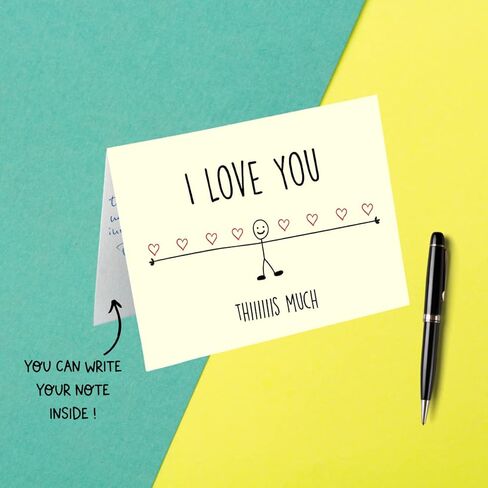 I LOVE YOU
THIIIIIIS MUCH
YOU CAN WRITE
YOUR NOTE
INSIDE !